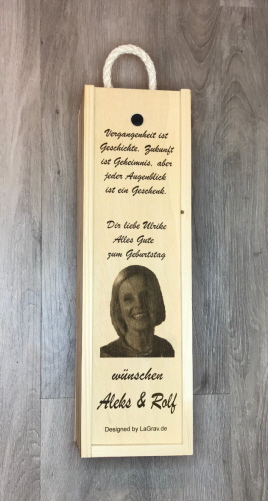 Vergangenheit ist
Geschichte, Zukunft
ist Geheimnis, aber
jeder Augenblick
ist ein Geschenk.
Dir liebe Ulrike
Alles Gute
zum Geburtstag
wünschen
Aleks & Rolf
Designed by LaGrav.de